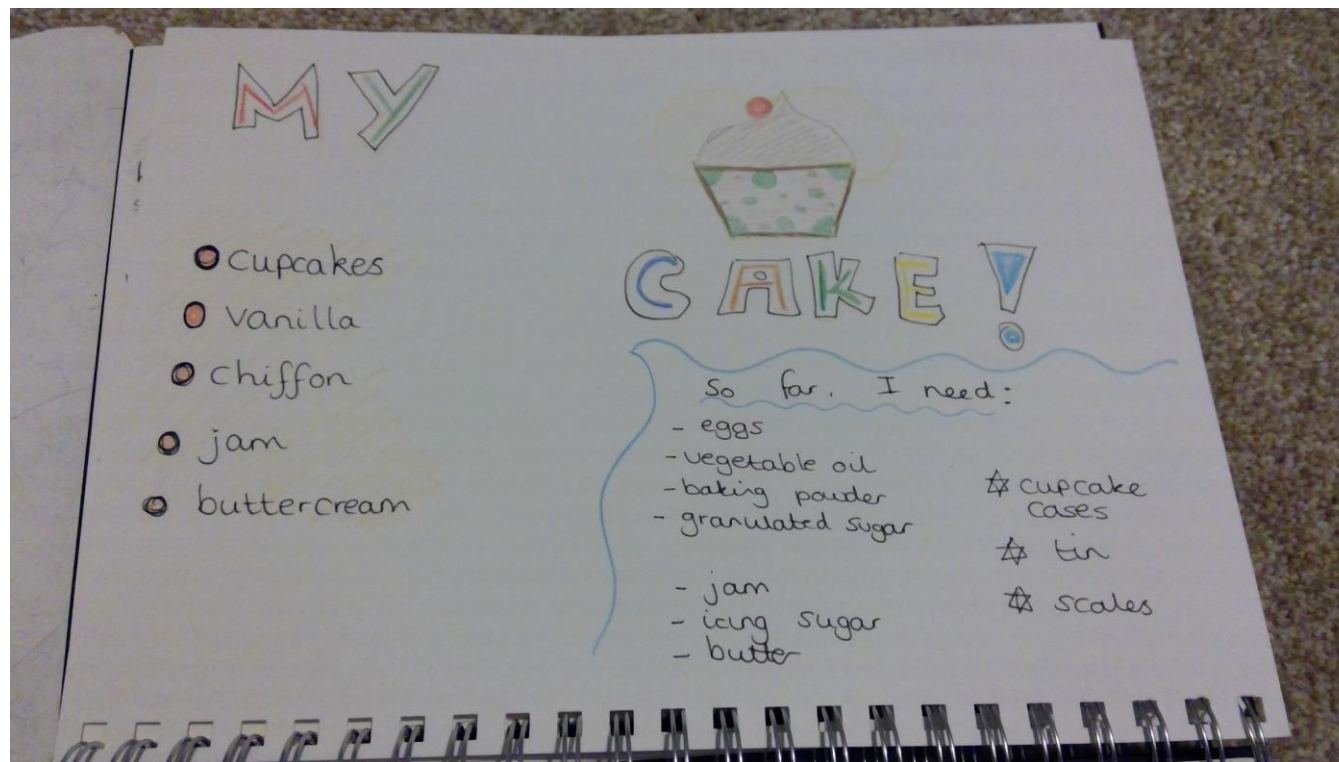 MY
CAKE!
cupcakes
vanilla
chiffon
jam
buttercream
So far, I need:
- eggs
- vegetable oil
- baking powder
- granulated sugar
- jam
- icing sugar
- butter
☆ cupcake
cases
☆ tin
☆ scales